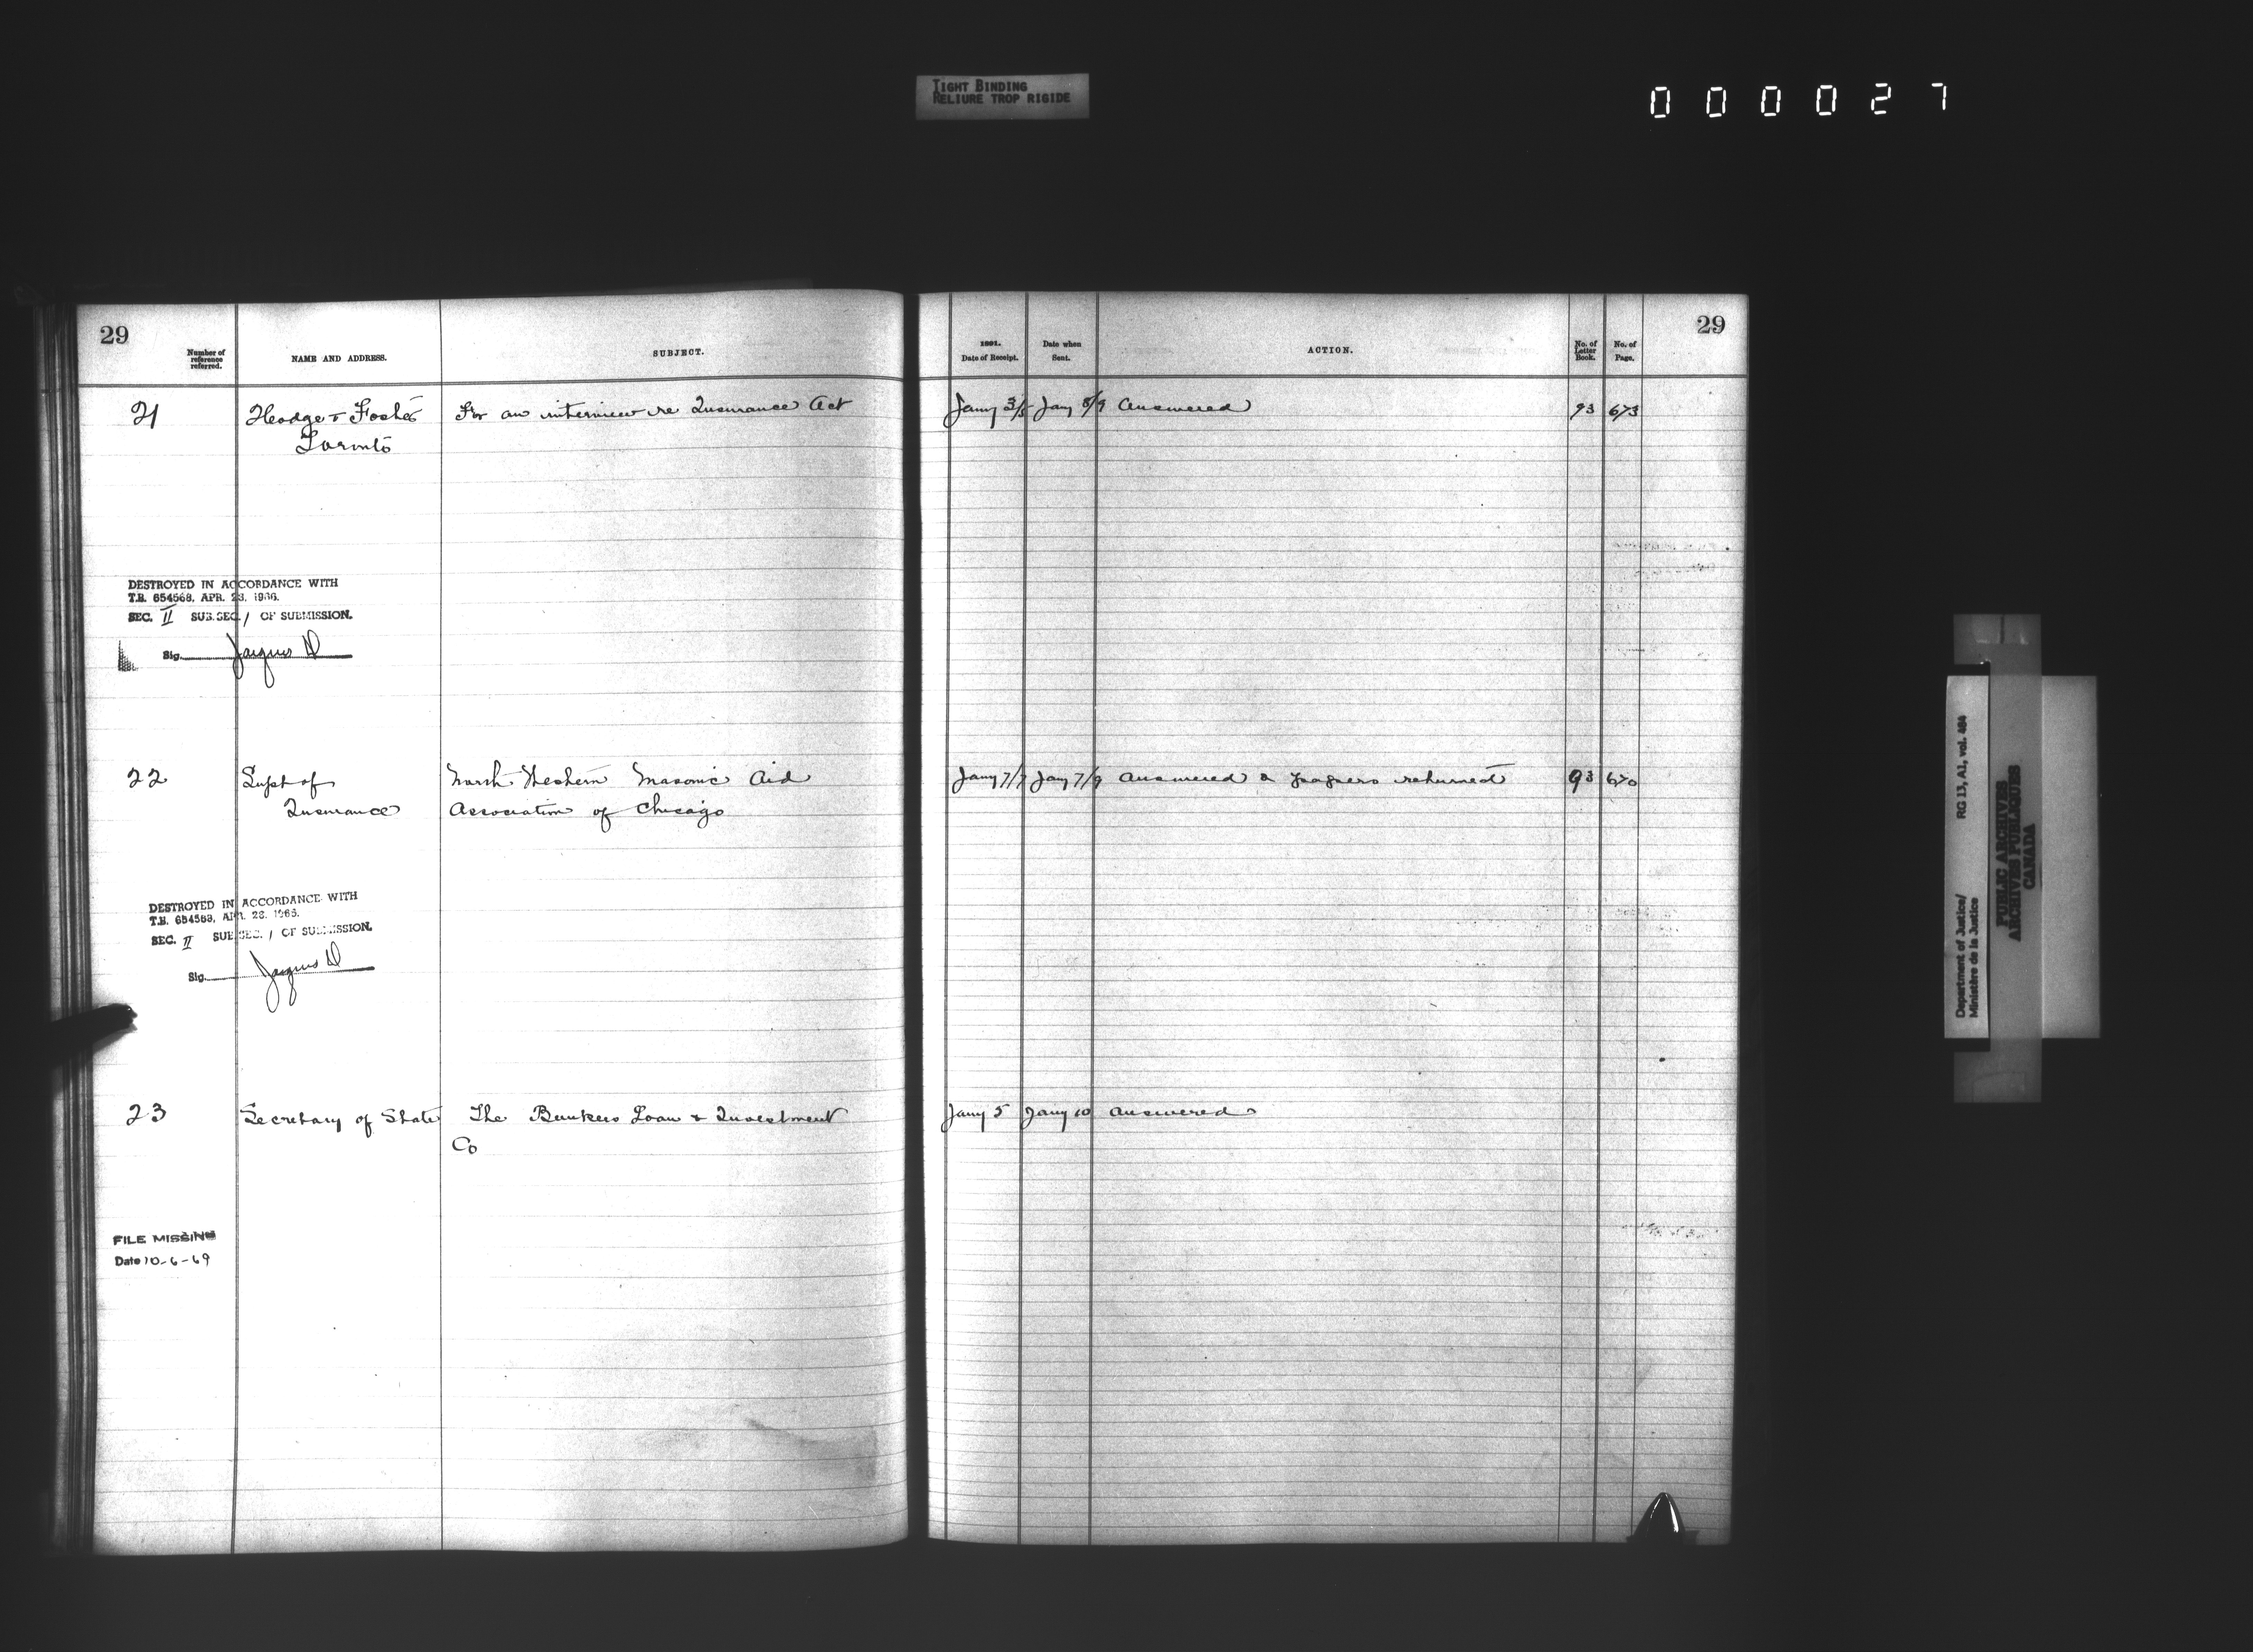 TIGHT BINDING
RELIURE TROP RIGIDE
000027
29
Number of reference referred.
NAME AND ADDRESS.
SUBJECT.
1891.
Date of Receipt.
Date when Sent.
ACTION.
No. of Letter Book.
No. of Page.
29
21 Hodge & Foster For an interview re Insurance Act Jany 3/5 Jany 8/9 Answered 93 673
Toronto
DESTROYED IN ACCORDANCE WITH
T.B. 654568, APR. 28, 1966.
SEC. II SUB.SEC. 1 OF SUBMISSION.
Sig. Jacques D
22 Supt of North Western Masonic Aid Jany 7/7 Jany 7/9 Answered & papers returned 93 670
Insurance Association of Chicago
DESTROYED IN ACCORDANCE WITH
T.B. 654568, APR. 28, 1966.
SEC. II SUB.SEC. 1 OF SUBMISSION.
Sig. Jacques D
23 Secretary of State The Bankers Loan & Investment Jany 5 Jany 10 Answered
Co
FILE MISSING
Date 10-6-69
Department of Justice/ RG 13, A1, vol. 484
Ministère de la Justice
PUBLIC ARCHIVES
ARCHIVES PUBLIQUES
CANADA